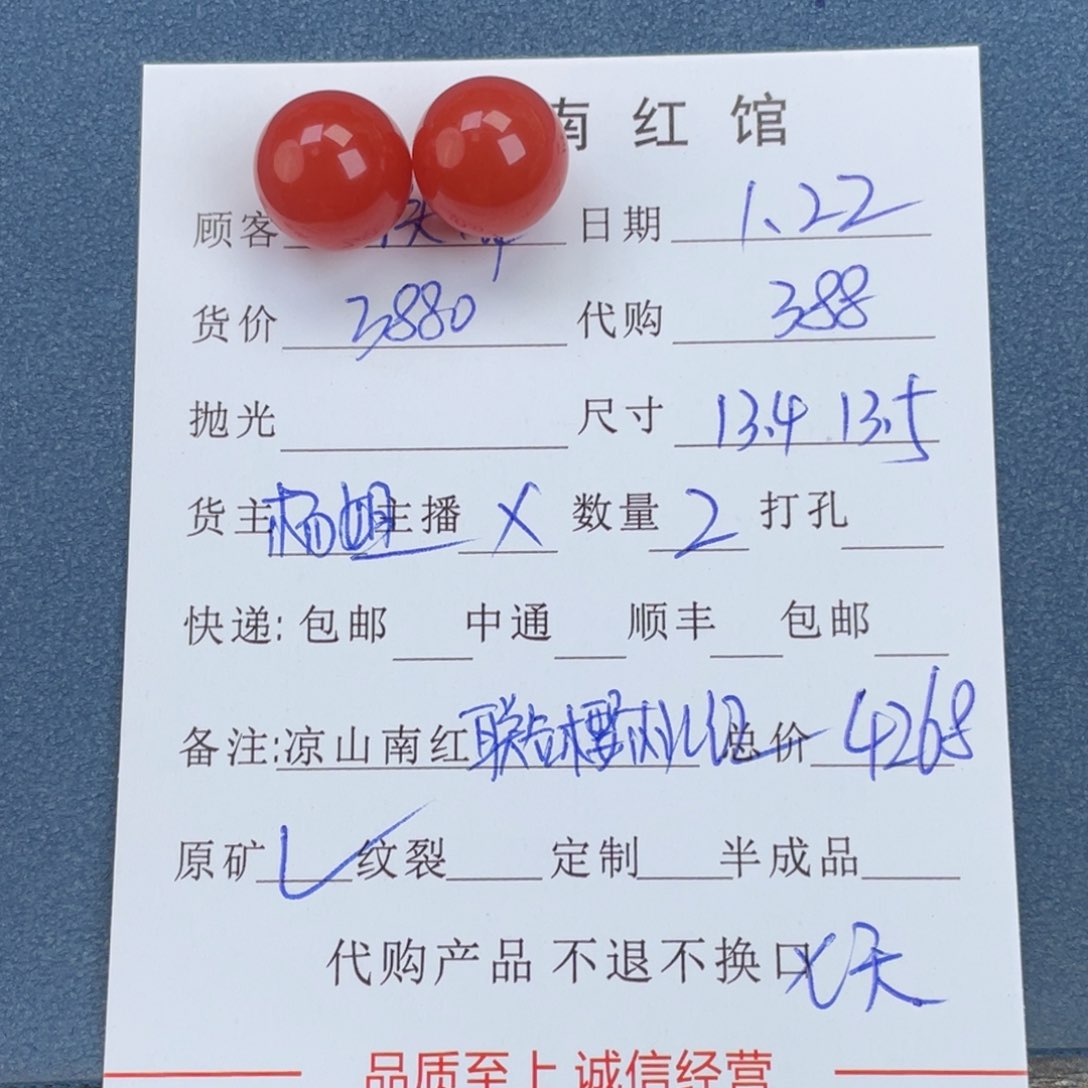 南红馆
顾客 日期 1.22
货价 3880 代购 388
抛光 尺寸 13.4 13.5
货主 杨姐 主播 X 数量 2 打孔
快递: 包邮 中通 顺丰 包邮
备注: 凉山南红 联合樱桃红 总价 4268
原矿 ✓ 纹裂 定制 半成品
代购产品 不退不换 天
品质至上 诚信经营